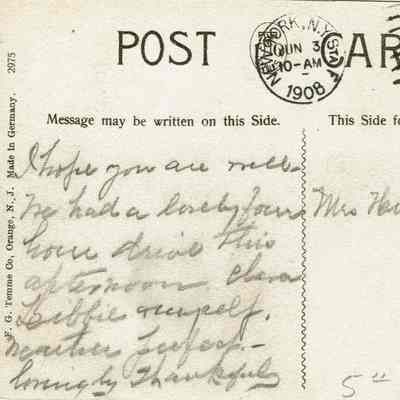 POST CAR
NEW YORK, N.Y. STA F
JUN 3
10-AM
1908
Message may be written on this Side.
This Side fo
F. G. Temme Co, Orange, N. J. Made in Germany. 2975
I hope you are well.
We had a lovely four
hour drive this
afternoon Clara
Libbie myself.
Weather perfect.-
lovingly
Mrs
5